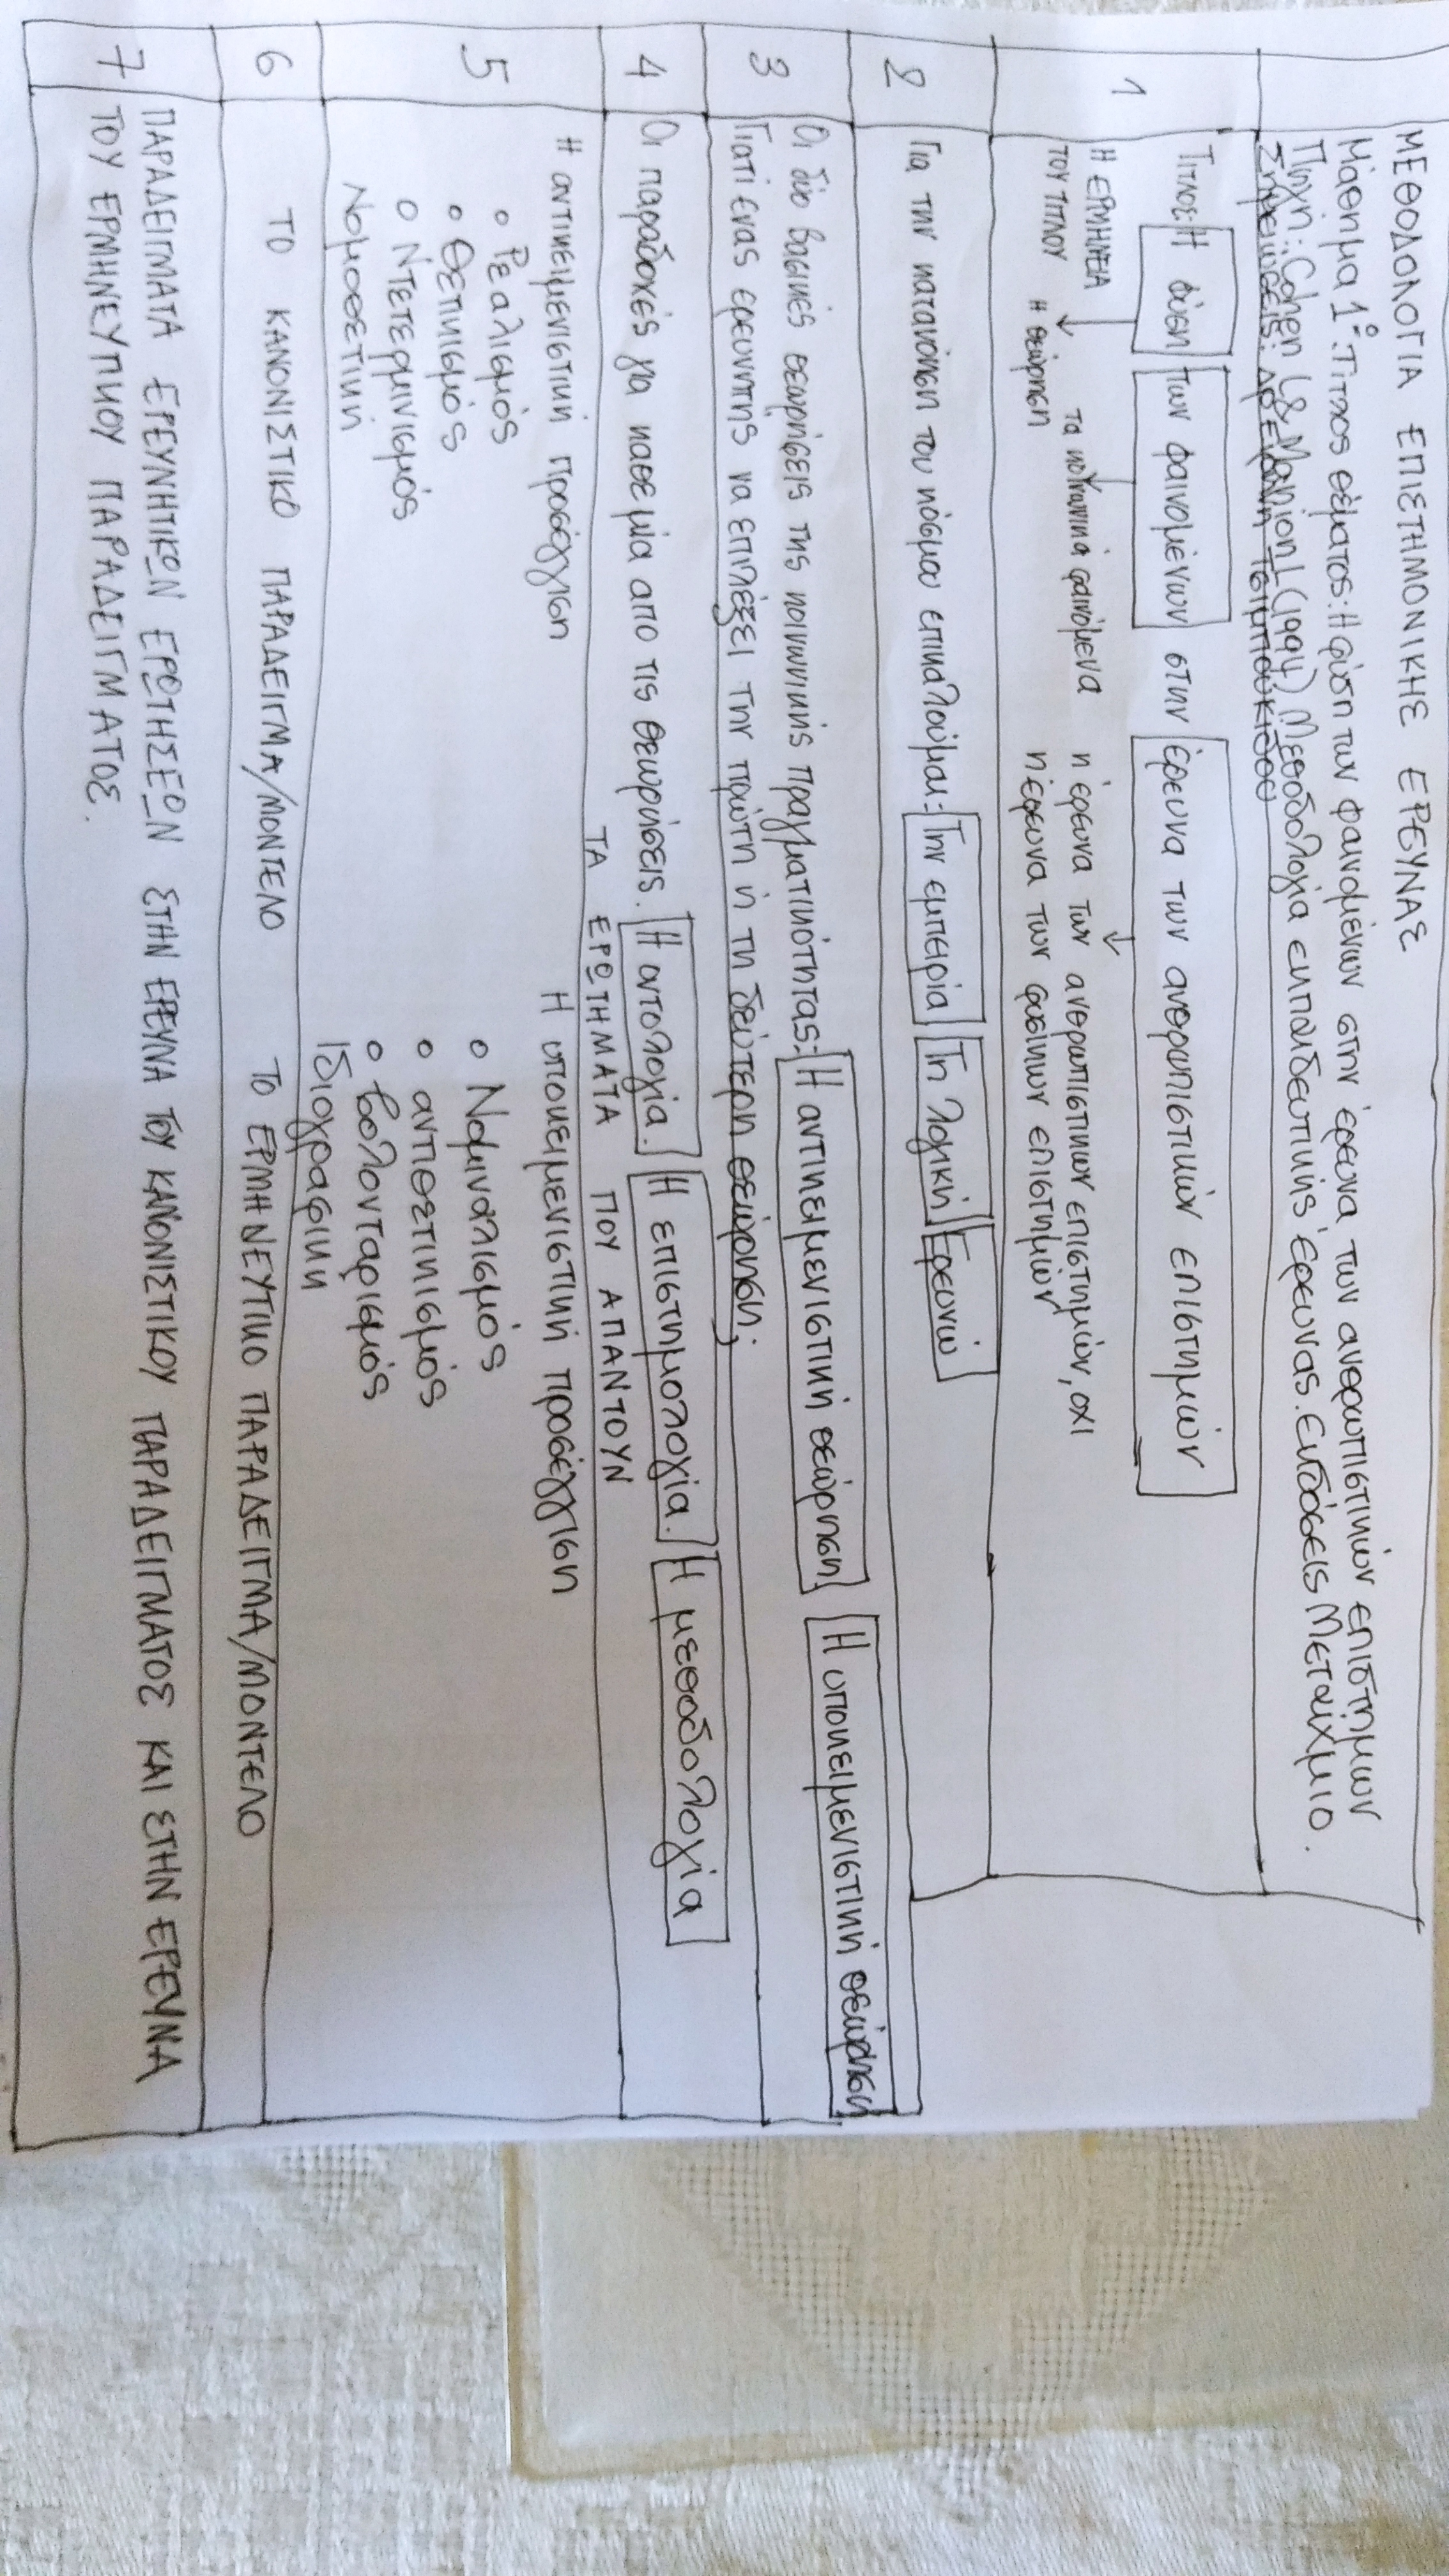 ΜΕΘΟΔΟΛΟΓΙΑ ΕΠΙΣΤΗΜΟΝΙΚΗΣ ΕΡΕΥΝΑΣ
Μάθημα 1ο: Τίτλος θέματος: Η φύση των φαινομένων στην έρευνα των ανθρωπιστικών επιστημών
Πηγή: Cohen L & Manion L (1994) Μεθοδολογία εκπαιδευτικής έρευνας. Εκδόσεις Μεταίχμιο.
1
Τίτλος: Η φύση των φαινομένων στην έρευνα των ανθρωπιστικών επιστημών
Η ΕΡΜΗΝΕΙΑ
ΤΟΥ ΤΙΤΛΟΥ
Η θεώρηση
τα κοινωνικά φαινόμενα
η έρευνα των ανθρωπιστικων επιστημών, οχι
η έρευνα των φυσικων επιστημών
2
Για την κατανόηση του κόσμου επικαλούμαι: Την εμπειρία Τη λογική Ερευνώ
3
Οι δύο βασικές θεωρήσεις της κοινωνικής πραγματικότητας: Η αντικειμενιστική θεώρηση Η υποκειμενιστική θεώρηση
Γιατί ένας ερευνητής να επιλέξει την πρώτη ή τη δεύτερη θεώρηση;
4
Οι παραδοχές για καθε μία απο τις θεωρήσεις. Η οντολογία. Η επιστημολογία. Η μεθοδολογία
ΤΑ ΕΡΩΤΗΜΑΤΑ ΠΟΥ ΑΠΑΝΤΟΥΝ
5
Η αντικειμενιστική προσέγγιση
Ρεαλισμός
Θετικισμός
Ντετερμινισμός
Νομοθετική
Η υποκειμενιστική προσέγγιση
Νομιναλισμός
αντιθετικισμός
βολονταρισμός
Ιδιογραφικη
6
ΤΟ ΚΑΝΟΝΙΣΤΙΚΟ ΠΑΡΑΔΕΙΓΜΑ/ΜΟΝΤΕΛΟ ΤΟ ΕΡΜΗΝΕΥΤΙΚΟ ΠΑΡΑΔΕΙΓΜΑ/ΜΟΝΤΕΛΟ
7
ΠΑΡΑΔΕΙΓΜΑΤΑ ΕΡΕΥΝΗΤΙΚΩΝ ΕΡΩΤΗΣΕΩΝ ΣΤΗΝ ΕΡΕΥΝΑ ΤΟΥ ΚΑΝΟΝΙΣΤΙΚΟΥ ΠΑΡΑΔΕΙΓΜΑΤΟΣ ΚΑΙ ΣΤΗΝ ΕΡΕΥΝΑ
ΤΟΥ ΕΡΜΗΝΕΥΤΙΚΟΥ ΠΑΡΑΔΕΙΓΜΑΤΟΣ.